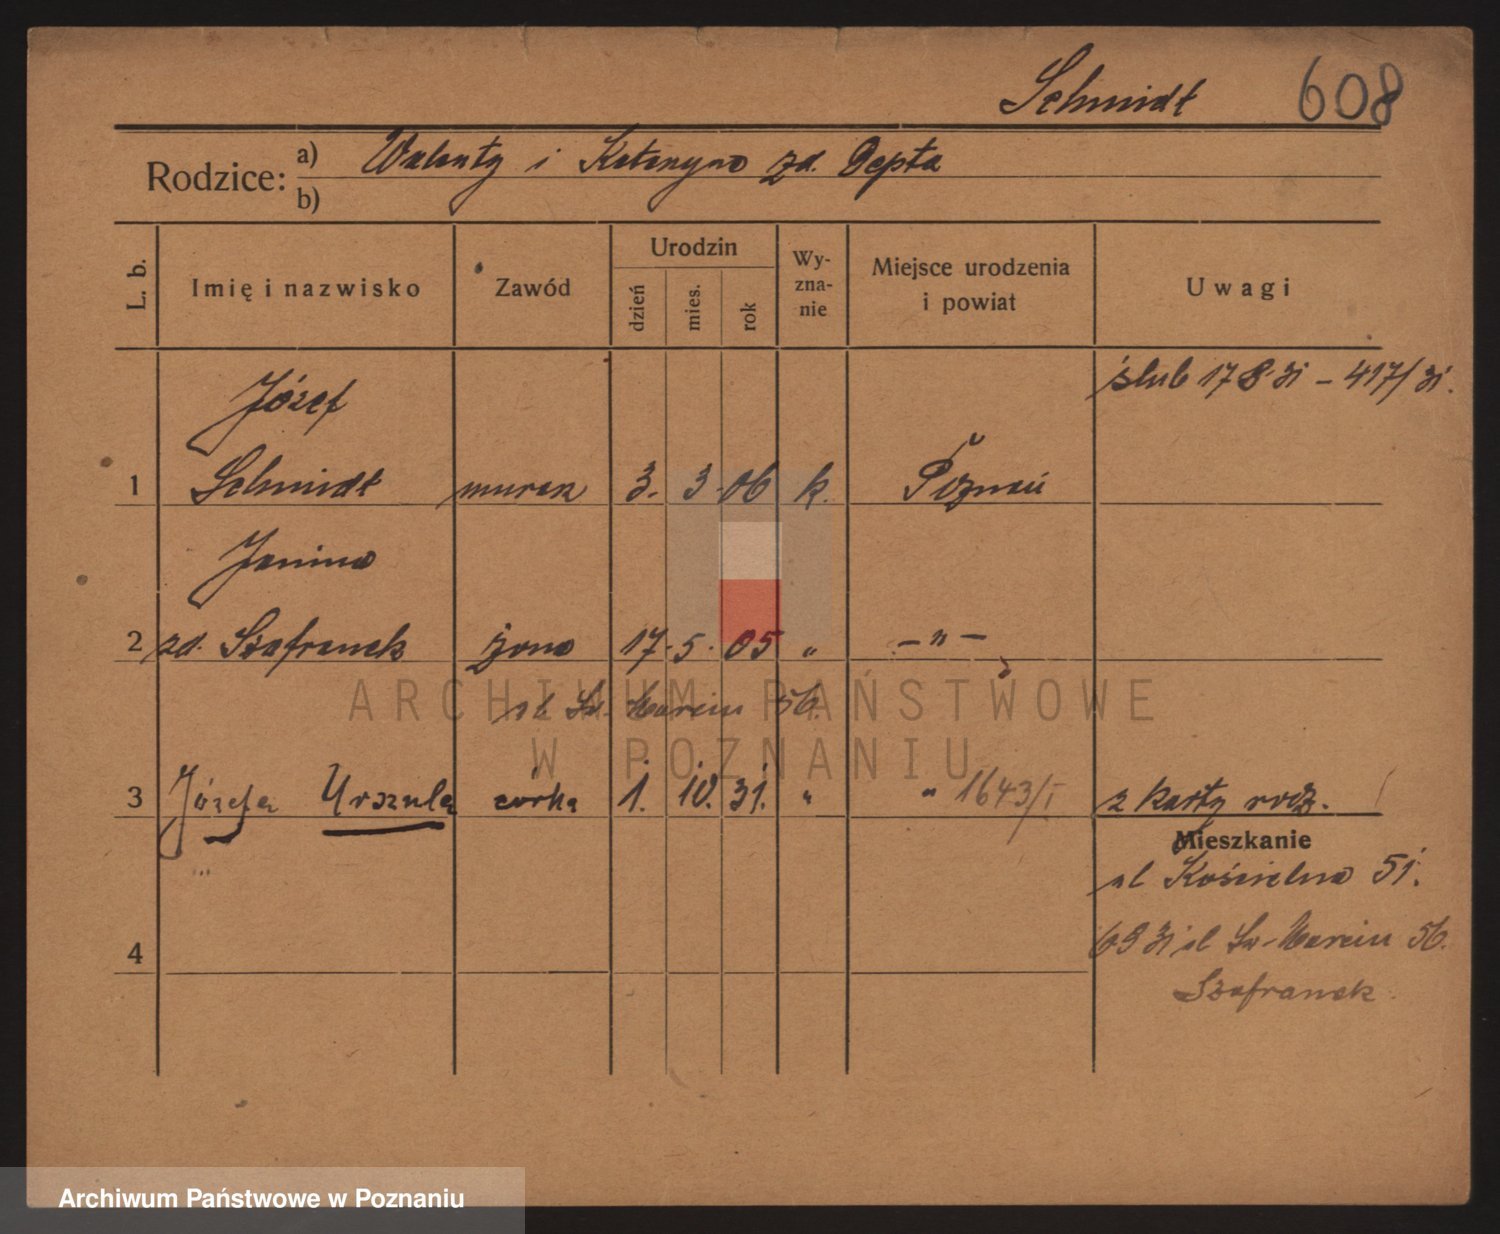 Schmidt 608
Rodzice: a) Walenty i Katarzyna zd. Depta
b)
L. b. Imię i nazwisko Zawód Urodzin dzień mies. rok Wy-zna-nie Miejsce urodzenia i powiat Uwagi
ślub 17 8 31 – 417/31.
Józef
1 Schmidt murarz 3. 3. 06 k. Poznań
Janina
2 zd. Szafranek żona 17. 5. 05 " – " –
ul Św. Marcin 56.
ARCHIWUM PAŃSTWOWE
W POZNANIU
3 Józefa Urszula córka 1. 10. 31. " " 1643/I z karty rodz.
Mieszkanie
ul Kościelna 51.
4 ul Św-Marcin 56.
Szafranek
Archiwum Państwowe w Poznaniu